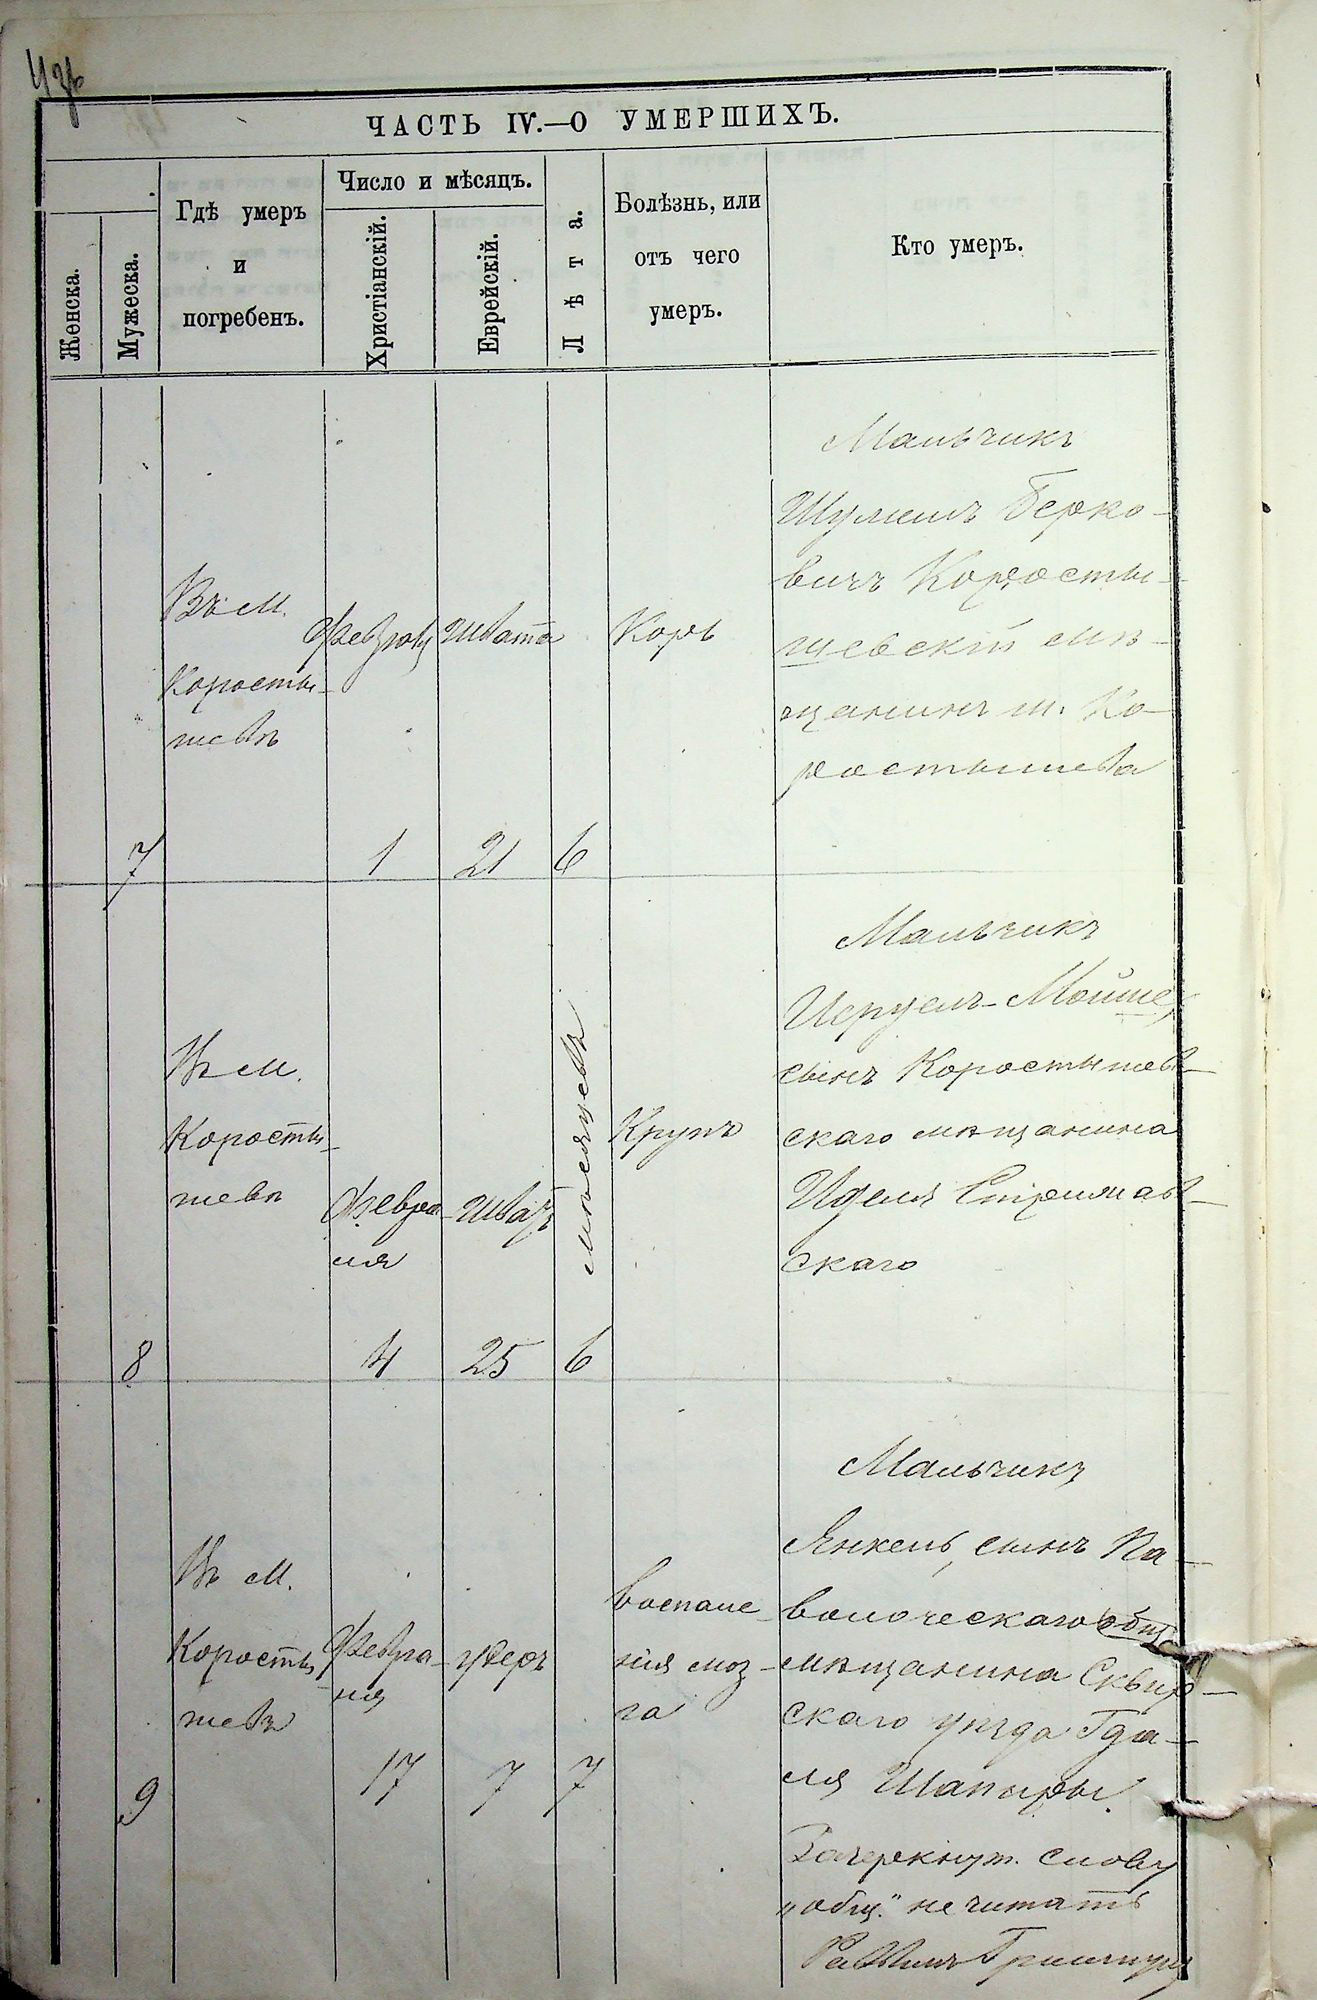 ЧАСТЬ IV.—О УМЕРШИХЪ.
Женска.
Мужеска.
Гдѣ умеръ
и
погребенъ.
Число и мѣсяцъ.
Христіанскій.
Еврейскій.
Лѣта.
Болѣзнь, или
отъ чего
умеръ.
Кто умеръ.
7
Въ м.
Коросты-
шевѣ
1
Швата
21
6
Корь
Мальчикъ
Шулимъ Берко-
вичъ Коросты-
шевскій мѣ-
щанинъ м. Ко-
ростышева
8
Въ м.
Коросты-
шевѣ
Февра-
ля
4
25
мѣсяцевъ
6
Крупъ
Мальчикъ
Мойше,
сынъ Коростышев-
скаго мѣщанина
Иделя
скаго
9
Въ м.
Коросты-
шевѣ
Февра-
ля
17
7
7
Воспале-
нія моз-
га
Мальчикъ
Янкель, сынъ Па-
волоческаго общ.
мѣщанина Сквир-
скаго уѣзда Гда-
ля Шапиры.
Зачеркнут. слову
„общ.“ не читать
Раввинъ